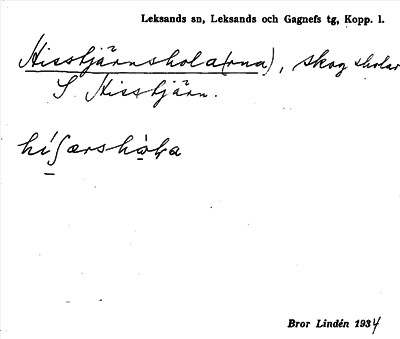 Leksands sn, Leksands och Gagnefs tg, Kopp. l.
Hisstjärnshola(rna), skog
S. Hisstjärn.
Bror Lindén 1934